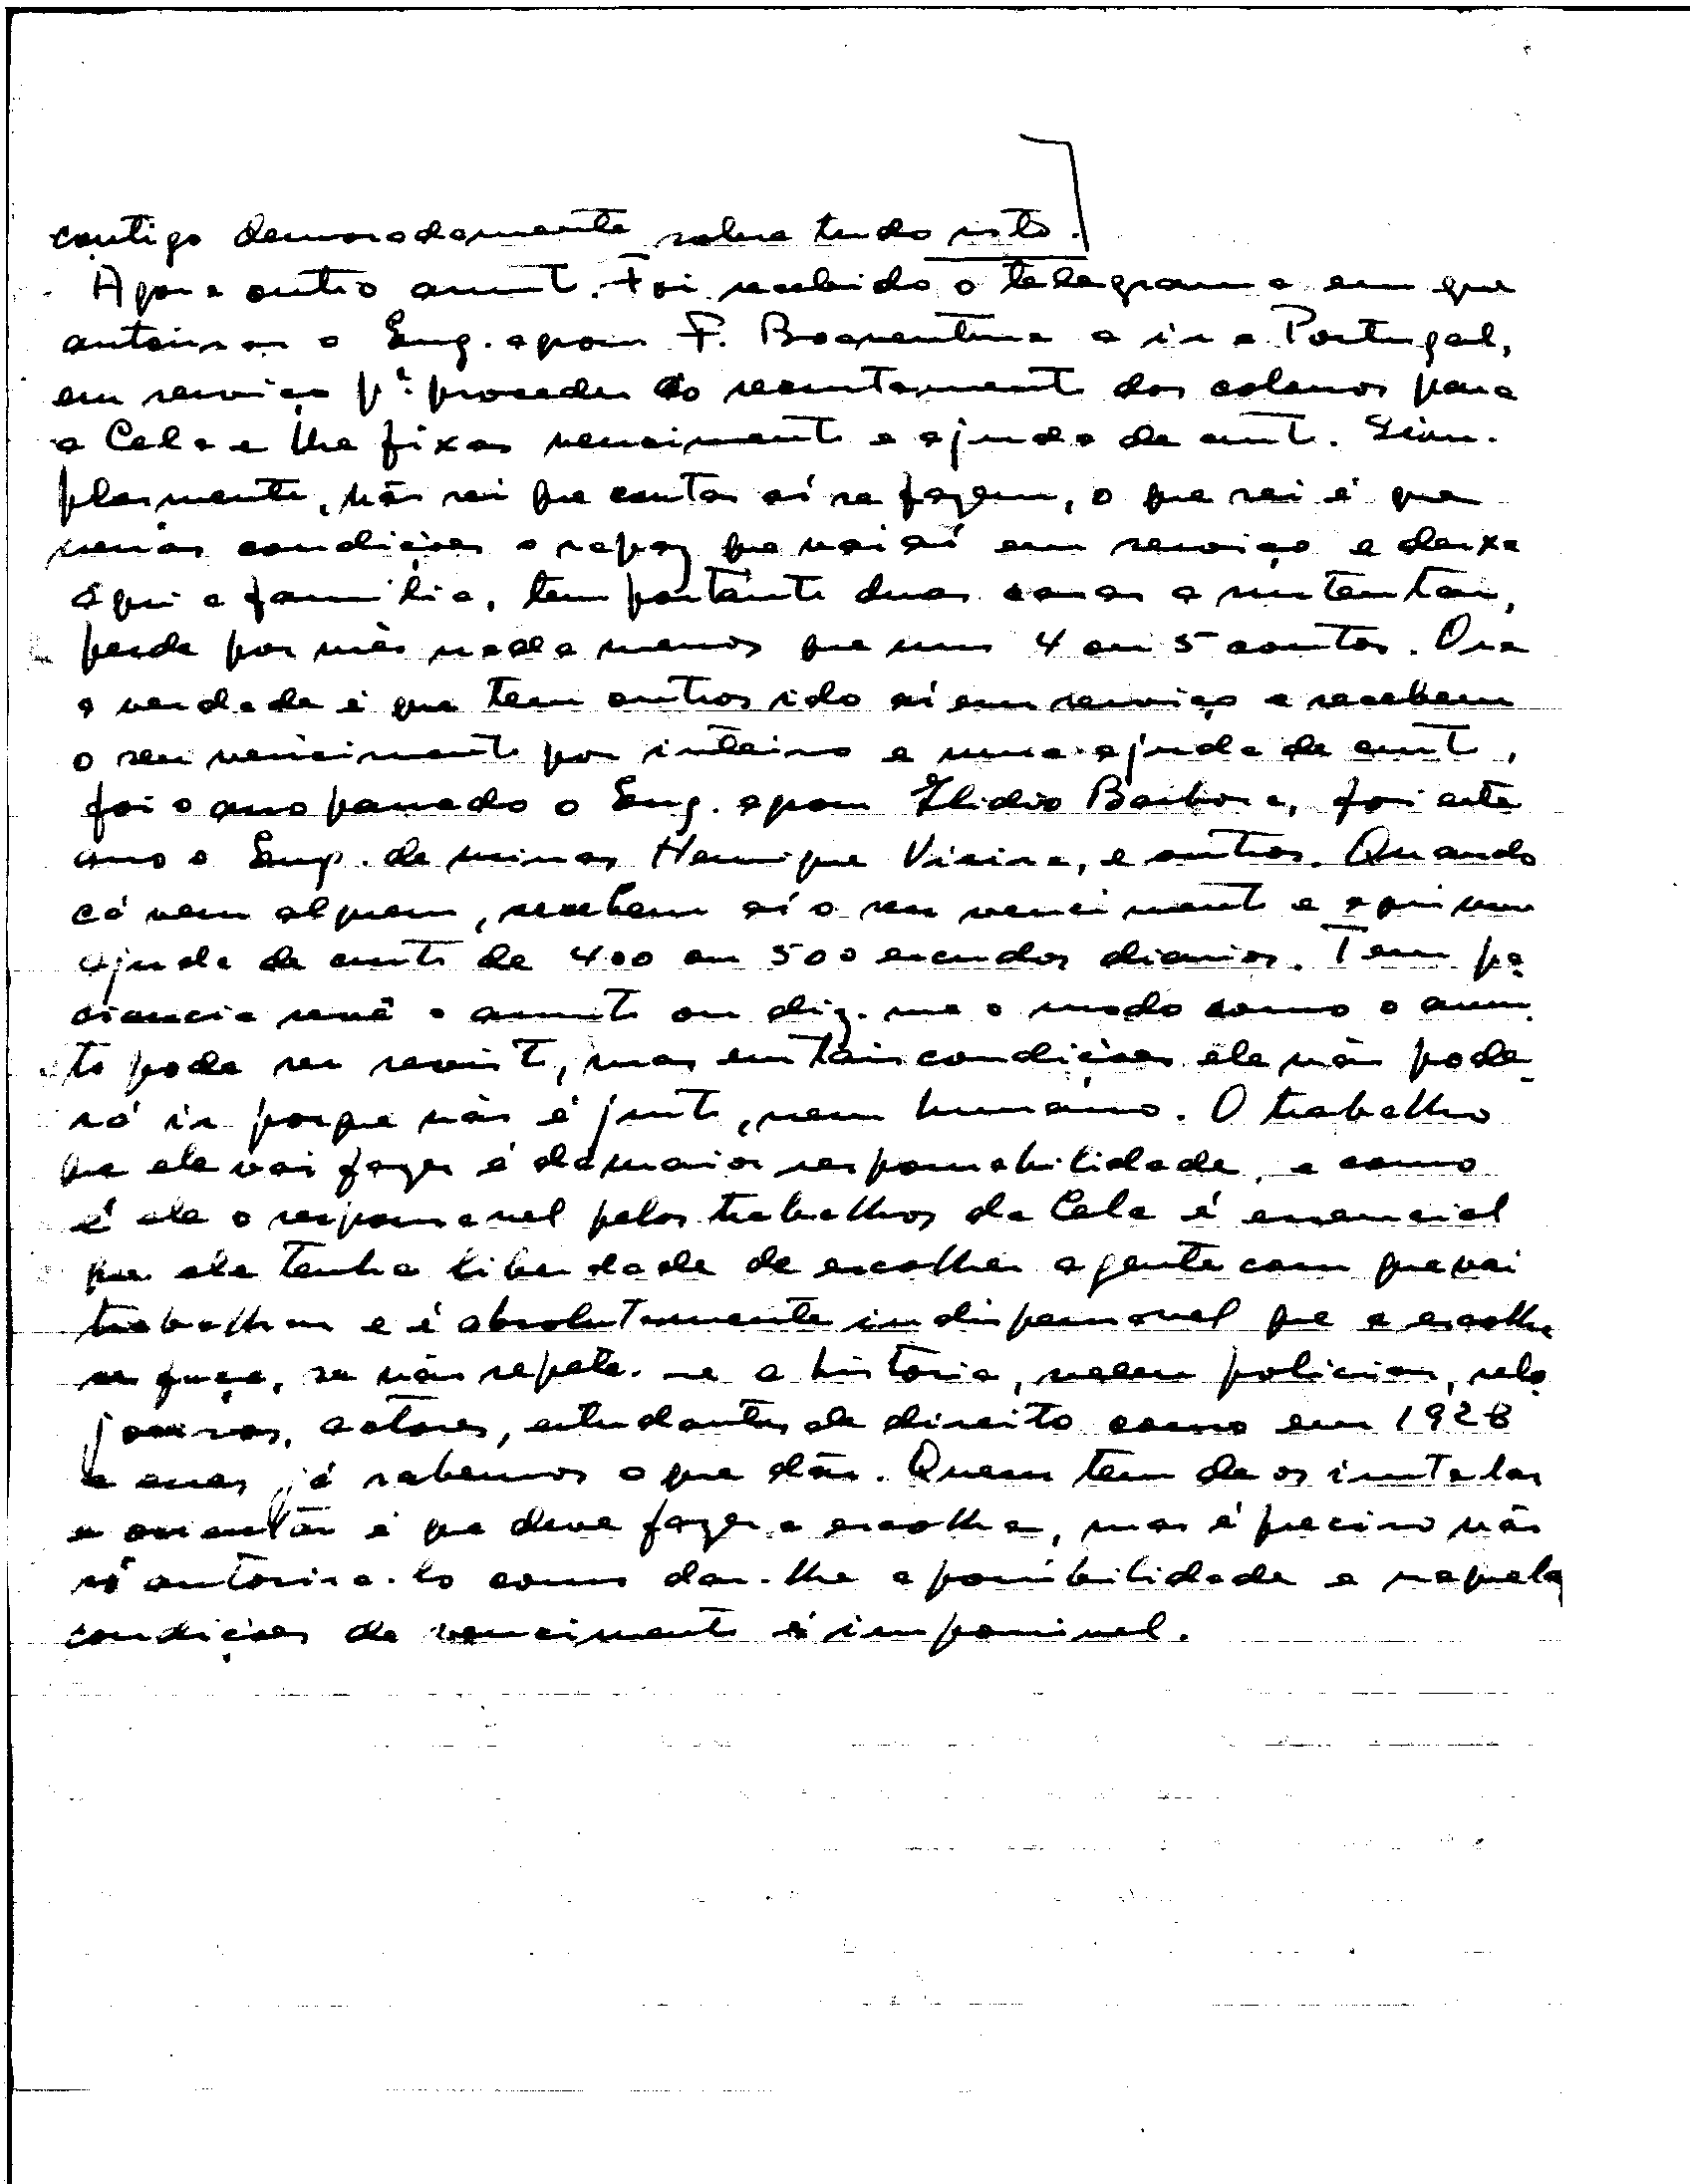 contigo demoradamente sobre tudo isto.
Agora outro assunto. Foi recebido o telegrama em que
autorisam o Eng. agrom F. Boaventura a ir a Portugal,
em serviço pª. proceder ao recrutamento dos colonos para
a Cela e lhe fixas vencimento e ajuda de custo. Sim-
plesmente, não sei que contas aí se fazem, o que sei é que
nessas condições o rapaz que vai aí em serviço e deixa
aqui a familia, tem portanto duas casas a sustentar,
perde por mês nada menos que uns 4 ou 5 contos. Ora
a verdade é que tem outros ido aí em serviço e recebem
o seu vencimento por inteiro e uma ajuda de custo,
foi o ano passado o Eng. agrom Ilidio Barbosa, foi este
ano o Eng. de minas Henrique Vieira, e outros. Quando
cá vem alguem, recebem aí o seu vencimento e aqui uma
ajuda de custo de 400 ou 500 escudos diarios. Tem pa-
ciencia revê o assunto ou diz-me o modo como o assun-
to pode ser revisto, mas em tais condições ele não pode
só ir porque não é justo, nem humano. O trabalho
que ele vai fazer é da maior responsabilidade, e como
é ele o responsavel pelos trabalhos da Cela é essencial
que ele tenha liberdade de escolher a gente com que vai
trabalhar e é absolutamente indispensavel que a escolha
se faça, se não repete-se a historia, veem policias, relo-
joeiros, actores, estudantes de direito como em 1928
e esses já sabemos o que dão. Quem tem de os instalar
e orientar é que deve fazer a escolha, mas é preciso não
só autorisa-lo como dar-lhe a possibilidade e naquelas
condições de vencimento é impossivel.